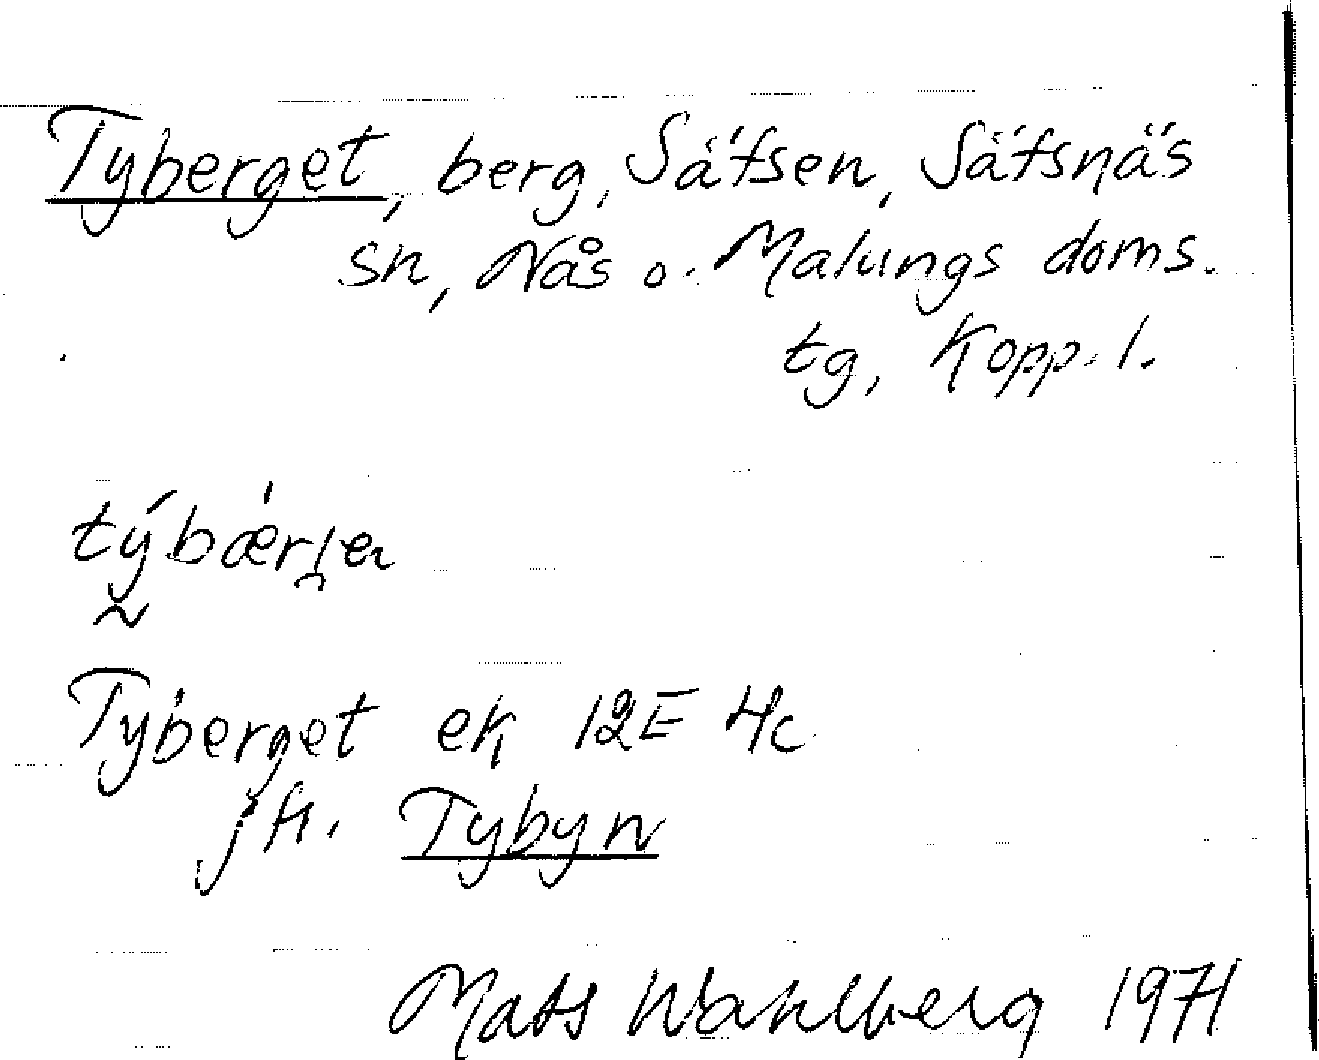 Tyberget, berg, Säfsen, Säfsnäs
sn, Nås o. Malungs doms.
tg, Kopp. l.
Tyberget ek 12E 4c
jfr. Tybyn
Mats Wahlberg 1971